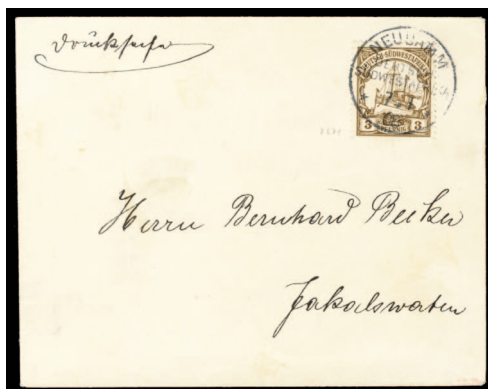 Drucksache
NEUDAMM
DEUTSCH-SÜDWESTAFRIKA
3 PFENNIG 3
Herrn Bernhard Becker
Jakalswater